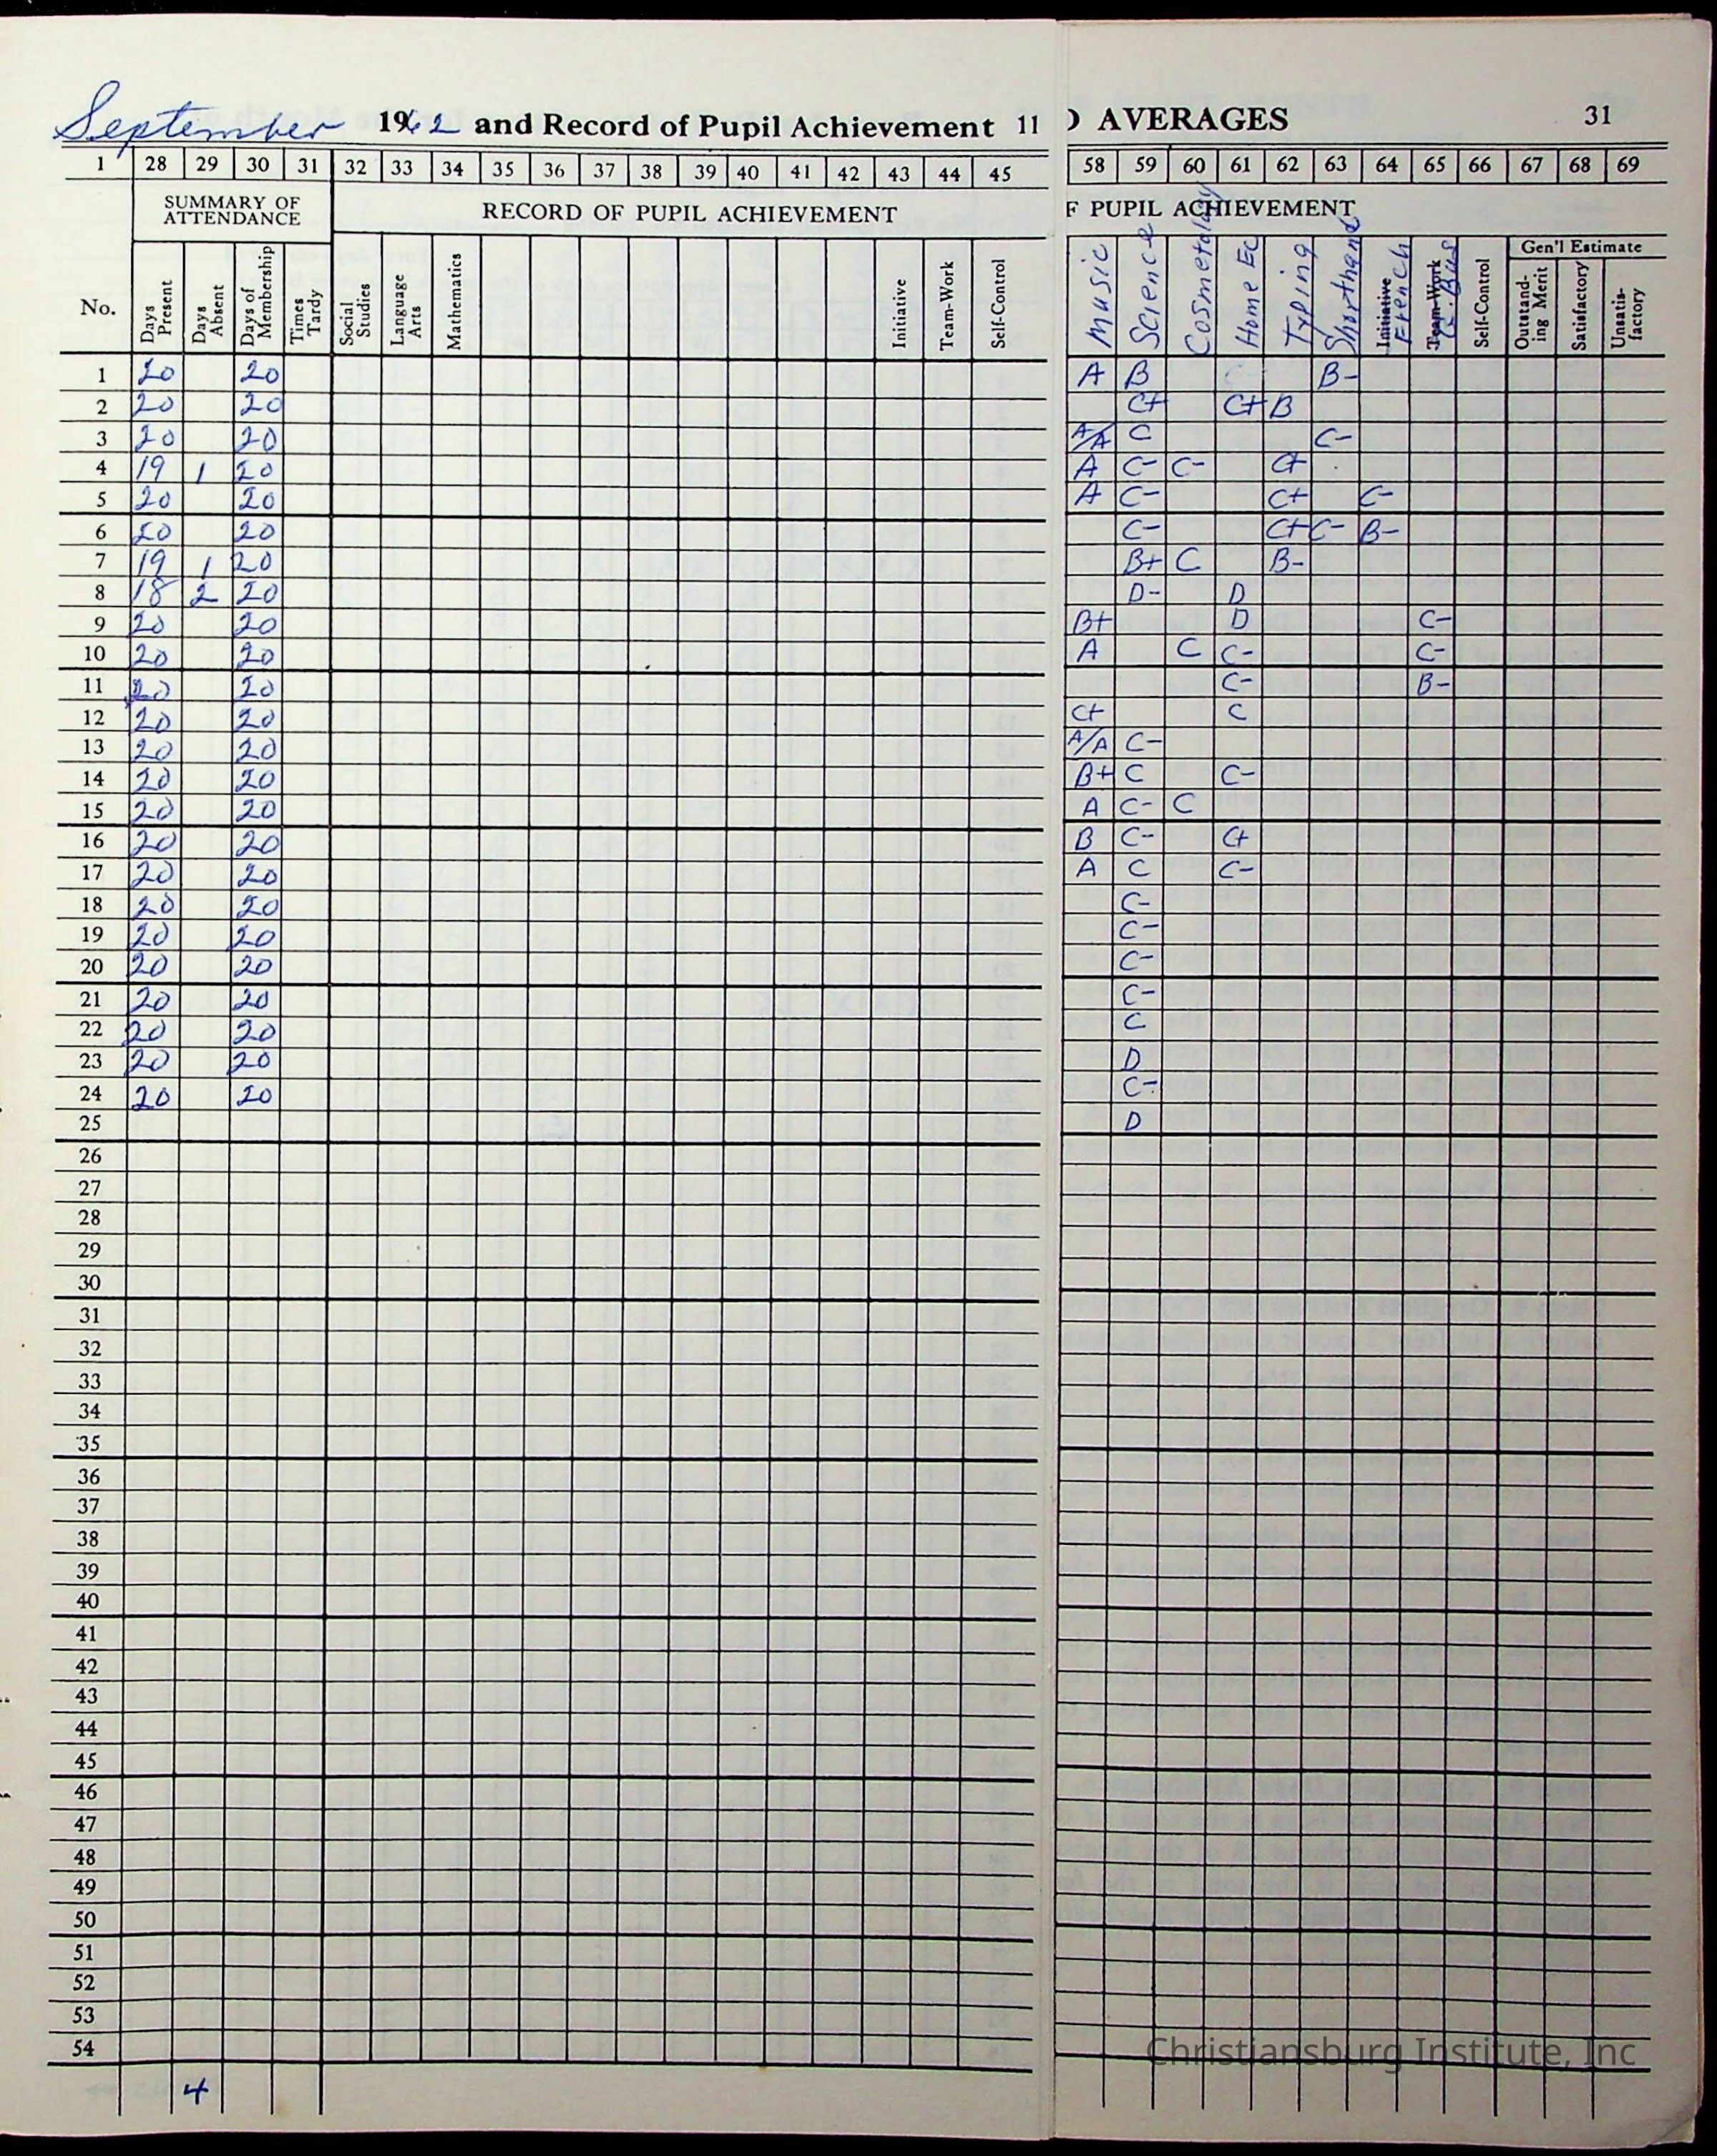 September 1962 and Record of Pupil Achievement 11 D AVERAGES 31
1 28 29 30 31 32 33 34 35 36 37 38 39 40 41 42 43 44 45 58 59 60 61 62 63 64 65 66 67 68 69
SUMMARY OF ATTENDANCE RECORD OF PUPIL ACHIEVEMENT F PUPIL ACHIEVEMENT
Gen'l Estimate
No. Days Present Days Absent Days of Membership Times Tardy Social Studies Language Arts Mathematics Initiative Team-Work Self-Control Music Science Cosmetology Home Ec Typing Shorthand Initiative French Team-Work G. Bus Self-Control Outstand-ing Merit Satisfactory Unsatis-factory
1 20 20 A B B-
2 20 20 C+ C+ B
3 20 20 A/A C C-
4 19 1 20 A C- C- C+
5 20 20 A C- C+ C-
6 20 20 C- C+ C- B-
7 19 1 20 B+ C B-
8 18 2 20 D- D
9 20 20 B+ D C-
10 20 20 A C C- C-
11 20 20 C- B-
12 20 20 C+ C
13 20 20 A/A C-
14 20 20 B+ C C-
15 20 20 A C- C
16 20 20 B C- C+
17 20 20 A C C-
18 20 20 C-
19 20 20 C-
20 20 20 C-
21 20 20 C-
22 20 20 C
23 20 20 D
24 20 20 C-
25 D
26
27
28
29
30
31
32
33
34
35
36
37
38
39
40
41
42
43
44
45
46
47
48
49
50
51
52
53
54
4
Christiansburg Institute, Inc